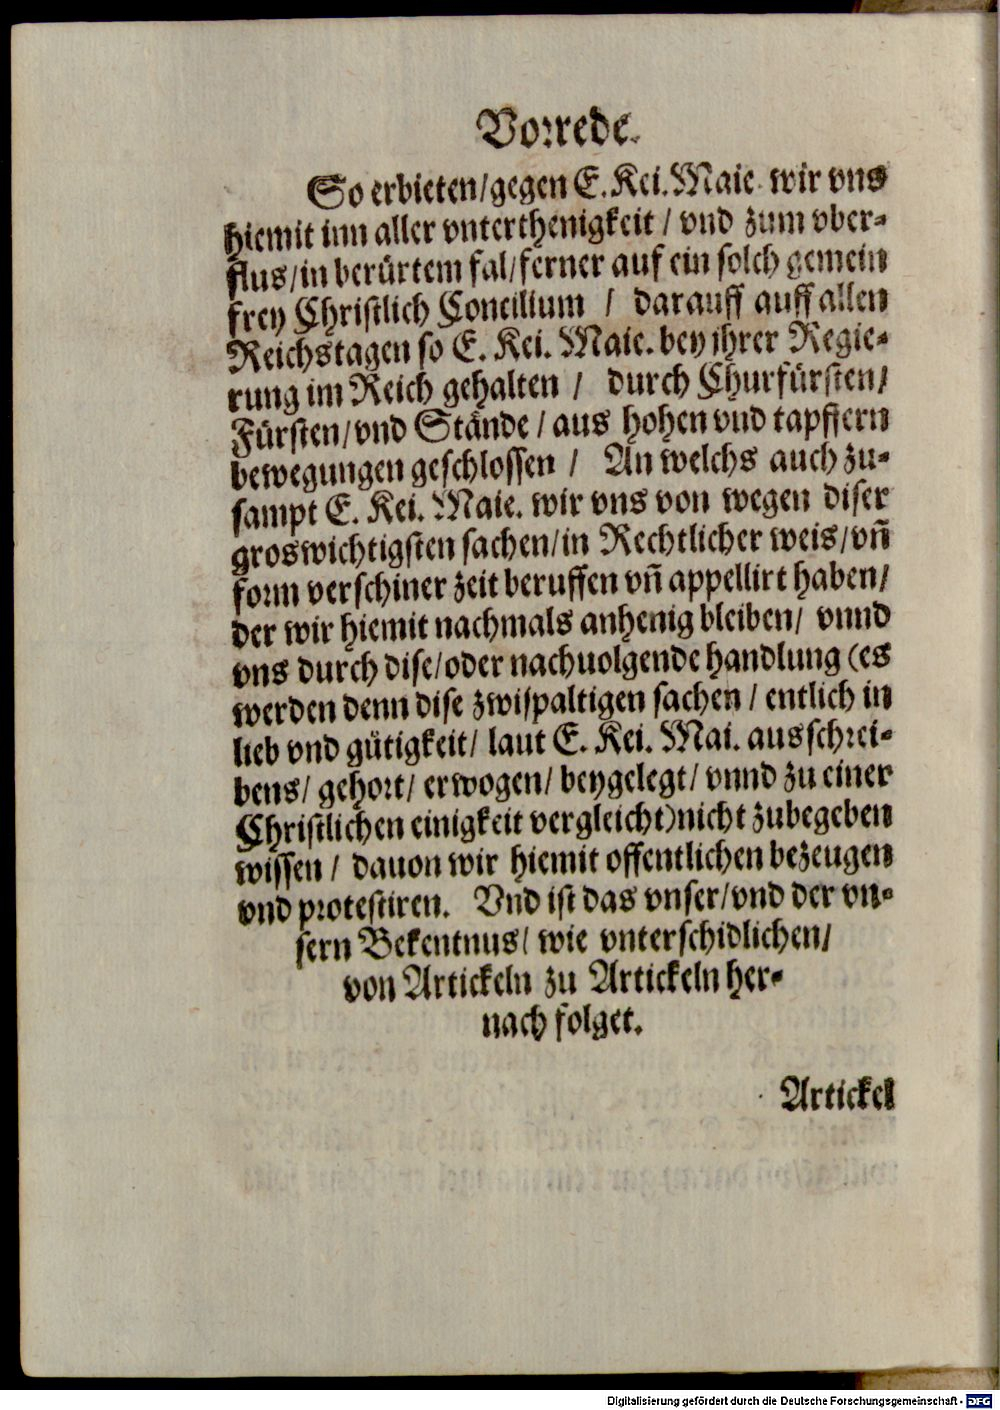 Vorrede.
So erbieten/gegen E. Kei. Maie. wir vns
hiemit inn aller vnterthenigkeit / vnd zum vber-
flus/in berürtem fal/ferner auf ein solch gemein
frey Christlich Concilium / darauff auff allen
Reichstagen so E. Kei. Maie. bey ihrer Regie-
rung im Reich gehalten / durch Churfürsten/
Fürsten/vnd Stände / aus hohen vnd tapffern
bewegungen geschlossen / An welchs auch zu-
sampt E. Kei. Maie. wir vns von wegen diser
groswichtigsten sachen/in Rechtlicher weis/vñ
form verschiner zeit beruffen vñ appellirt haben/
der wir hiemit nachmals anhenig bleiben/ vnnd
vns durch dise/oder nachuolgende handlung (es
werden denn dise zwispaltigen sachen / entlich in
lieb vnd gütigkeit/ laut E. Kei. Mai. ausschrei-
bens/ gehort/ erwogen/ beygelegt/ vnnd zu einer
Christlichen einigkeit vergleicht)nicht zubegeben
wissen / dauon wir hiemit offentlichen bezeugen
vnd protestiren. Vnd ist das vnser/vnd der vn-
sern Bekentnus/ wie vnterschidlichen/
von Artickeln zu Artickeln her-
nach folget.
Artickel
Digitalisierung gefördert durch die Deutsche Forschungsgemeinschaft - DFG